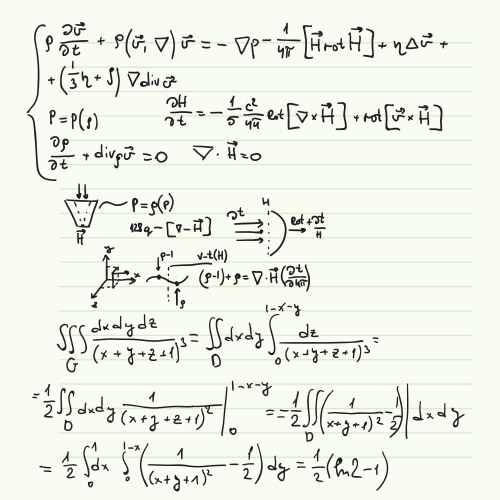 ρ ∂v⃗/∂t + ρ(v⃗, ∇) v⃗ = − ∇p − 1/4π [H⃗ rot H⃗] + η Δ v⃗ +
+ (1/3 η + ζ) ∇ div v⃗
P = P(ρ) ∂H/∂t = − 1/σ c²/4π rot [∇ × H⃗] + rot [v⃗ × H⃗]
∂ρ/∂t + div ρ v⃗ = 0 ∇ · H⃗ = 0
P = ρ(P) H
128q − [∇ − H⃗] ∂t Rot + ∂t/H
H⃗
y ρ−1 v−t(H)
x (ρ−1) + ρ = ∇ · H⃗ (∂t/4π)
z ρ
∭_G dx dy dz / (x + y + z + 1)³ = ∬_D dx dy ∫_0^{1−x−y} dz / (x + y + z + 1)³ =
= 1/2 ∬_D dx dy 1/(x + y + z + 1)² |_0^{1−x−y} = − 1/2 ∬_D (1/(x + y + 1)² − 1/2) | dx dy
= 1/2 ∫_0^1 dx ∫_0^{1−x} (1/(x + y + 1)² − 1/2) dy = 1/2 (ln 2 − 1)